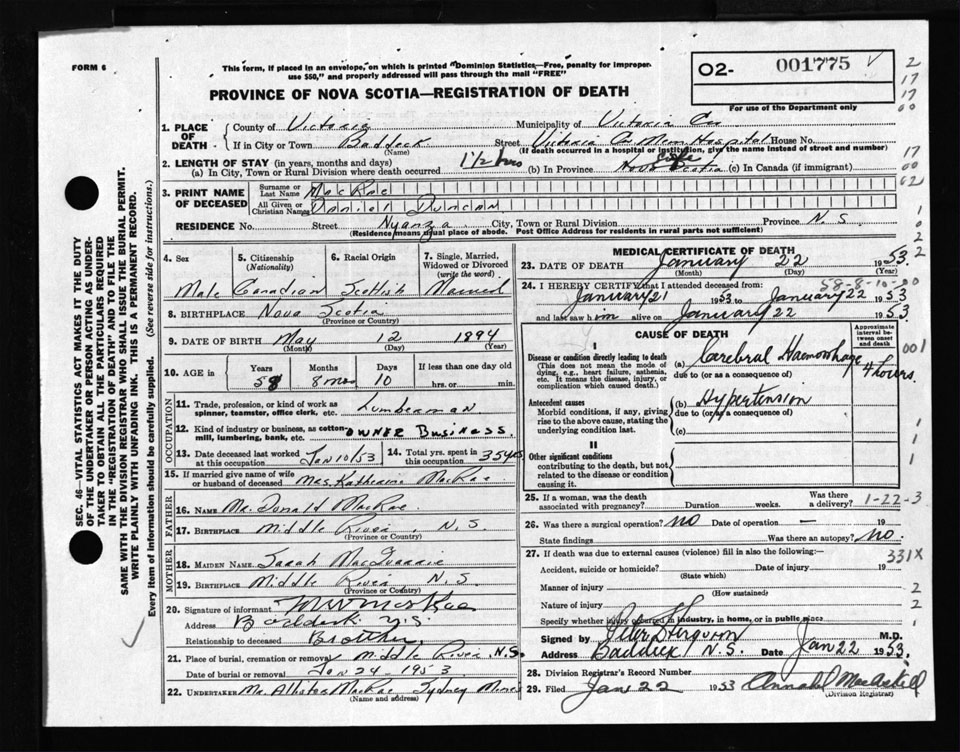 FORM 6
This form, if placed in an envelope, on which is printed "Dominion Statistics—Free, penalty for improper
use $50," and properly addressed will pass through the mail "FREE"
PROVINCE OF NOVA SCOTIA—REGISTRATION OF DEATH
O2- 001775
For use of the Department only
2
17
17
00
1. PLACE OF DEATH
County of Victoria Municipality of Victoria Co
If in City or Town Baddeck (Name) Street Victoria Co Mem Hospital House No.
(If death occurred in a hospital or institution, give the name instead of street and number)
2. LENGTH OF STAY (in years, months and days)
(a) In City, Town or Rural Division where death occurred 1 1/2 hrs (b) In Province Life Nova Scotia (c) In Canada (if immigrant)
17
00
02
3. PRINT NAME OF DECEASED
Surname or Last Name MacRae
All Given or Christian Names Daniel Duncan
RESIDENCE No. Street Nyanza City, Town or Rural Division Province N.S
(Residence means usual place of abode. Post Office Address for residents in rural parts not sufficient)
4. Sex
Male
5. Citizenship (Nationality)
Canadian
6. Racial Origin
Scottish
7. Single, Married, Widowed or Divorced (write the word)
Married
8. BIRTHPLACE Nova Scotia
(Province or Country)
9. DATE OF BIRTH May 12 1894
(Month) (Day) (Year)
10. AGE in
Years Months Days If less than one day
58 8 mos 10 hrs. or min.
OCCUPATION
11. Trade, profession, or kind of work as spinner, teamster, office clerk, etc. Lumberman
12. Kind of industry or business, as cotton mill, lumbering, bank, etc. OWNER Business.
13. Date deceased last worked at this occupation Jan 10/53
14. Total yrs. spent in this occupation 35 yrs
15. If married give name of wife or husband of deceased Mrs. Katherine MacRae
FATHER
16. NAME Mr. Donald MacRae
17. BIRTHPLACE Middle River, N.S.
(Province or Country)
MOTHER
18. MAIDEN NAME Sarah MacQuarrie
19. BIRTHPLACE Middle River, N.S
(Province or Country)
20. Signature of informant MacRae
Address Baddeck N.S.
Relationship to deceased Brother
21. Place of burial, cremation or removal Middle River, N.S.
Date of burial or removal Jan 24-1953
22. UNDERTAKER Mr. MacRae Sydney Mines
(Name and address)
MEDICAL CERTIFICATE OF DEATH
23. DATE OF DEATH January 22 1953.
(Month) (Day) (Year)
24. I HEREBY CERTIFY that I attended deceased from: 58-8-10-00
January 21 1953 to January 22 1953
and last saw him alive on January 22 1953.
CAUSE OF DEATH
Approximate interval between onset and death
001
I
Disease or condition directly leading to death
(This does not mean the mode of dying, e.g. heart failure, asthenia, etc. It means the disease, injury, or complication which caused death.)
(a) Cerebral Haemorrhage 4 hours.
due to (or as a consequence of)
Antecedent causes
Morbid conditions, if any, giving rise to the above cause, stating the underlying condition last.
(b) Hypertension
due to (or as a consequence of)
(c)
II
Other significant conditions
contributing to the death, but not related to the disease or condition causing it.
25. If a woman, was the death associated with pregnancy? Duration weeks. Was there a delivery? 1-22-3
26. Was there a surgical operation? NO Date of operation — 19
State findings Was there an autopsy? NO.
27. If death was due to external causes (violence) fill in also the following:— 331X
Accident, suicide or homicide? Date of injury 19
(State which)
Manner of injury 2
(How sustained)
Nature of injury 2
Specify whether injury occurred in industry, in home, or in public place 1
Signed by Ferguson M.D.
Address Baddeck N.S. Date Jan 22 1953.
28. Division Registrar's Record Number
29. Filed Jan 22 1953 Annabel MacAskill
(Division Registrar)
SEC. 46—VITAL STATISTICS ACT MAKES IT THE DUTY
OF THE UNDERTAKER OR PERSON ACTING AS UNDER-
TAKER TO OBTAIN ALL THE PARTICULARS REQUIRED
IN THE "REGISTRATION OF DEATH" AND TO FILE THE
SAME WITH THE DIVISION REGISTRAR WHO SHALL ISSUE THE BURIAL PERMIT.
WRITE PLAINLY WITH UNFADING INK. THIS IS A PERMANENT RECORD.
Every item of information should be carefully supplied. (See reverse side for instructions.)